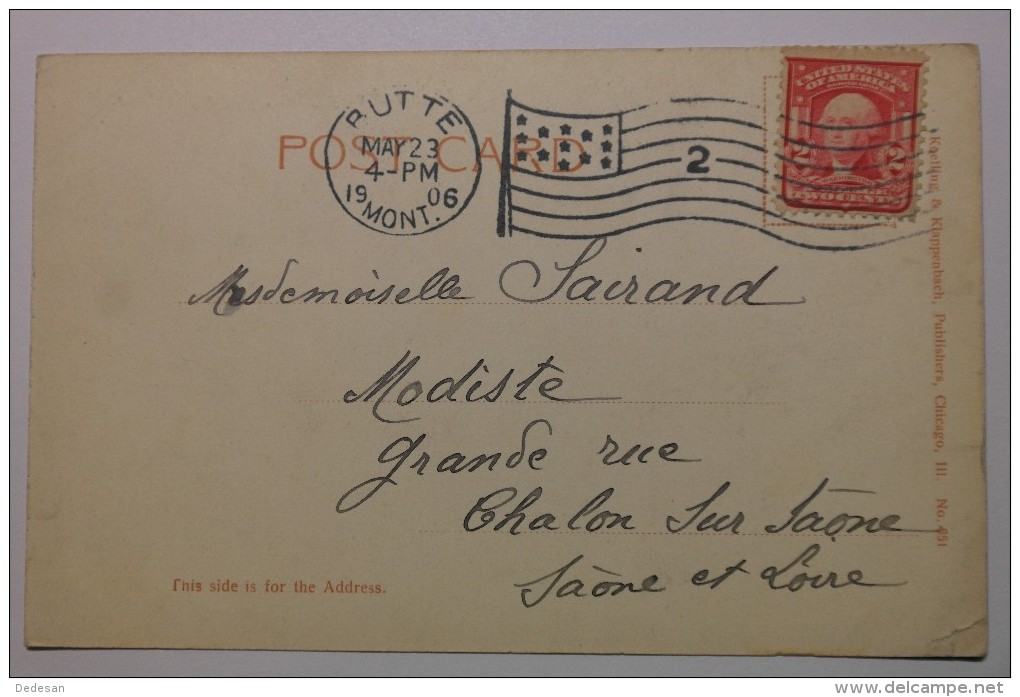 BUTTE
MAY 23
4-PM
1906
MONT.
2
UNITED STATES
OF AMERICA
2 2
WASHINGTON
TWO CENTS
POST CARD
Mesdemoiselle Sairand
Modiste
grande rue
Chalon Sur Saône
Saône et Loire
This side is for the Address.
Koelling & Klappenbach, Publishers, Chicago, Ill. No. 451
Dedesan
www.delcampe.net